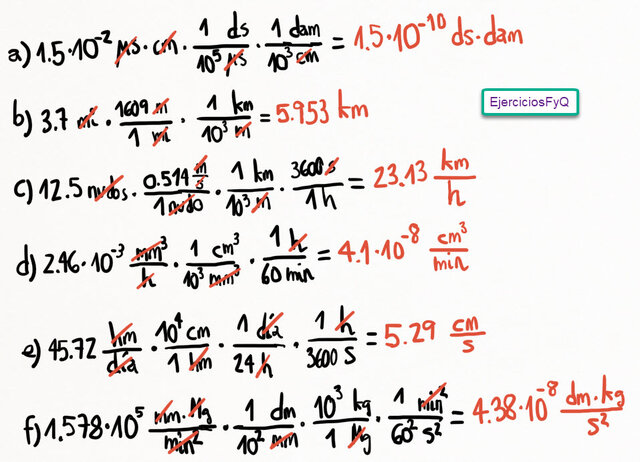 a) 1.5·10⁻² μs·cm · 1 ds/10⁵ μs · 1 dam/10³ cm = 1.5·10⁻¹⁰ ds·dam
EjerciciosFyQ
b) 3.7 mi · 1609 m/1 mi · 1 km/10³ m = 5.953 km
c) 12.5 nudos · 0.514 m/s/1 nudo · 1 km/10³ m · 3600 s/1 h = 23.13 km/h
d) 2.46·10⁻³ mm³/h · 1 cm³/10³ mm³ · 1 h/60 min = 4.1·10⁻⁸ cm³/min
e) 45.72 hm/día · 10⁴ cm/1 hm · 1 día/24 h · 1 h/3600 s = 5.29 cm/s
f) 1.578·10⁵ mm·Mg/min² · 1 dm/10² mm · 10³ kg/1 Mg · 1 min²/60² s² = 4.38·10⁻⁸ dm·kg/s²